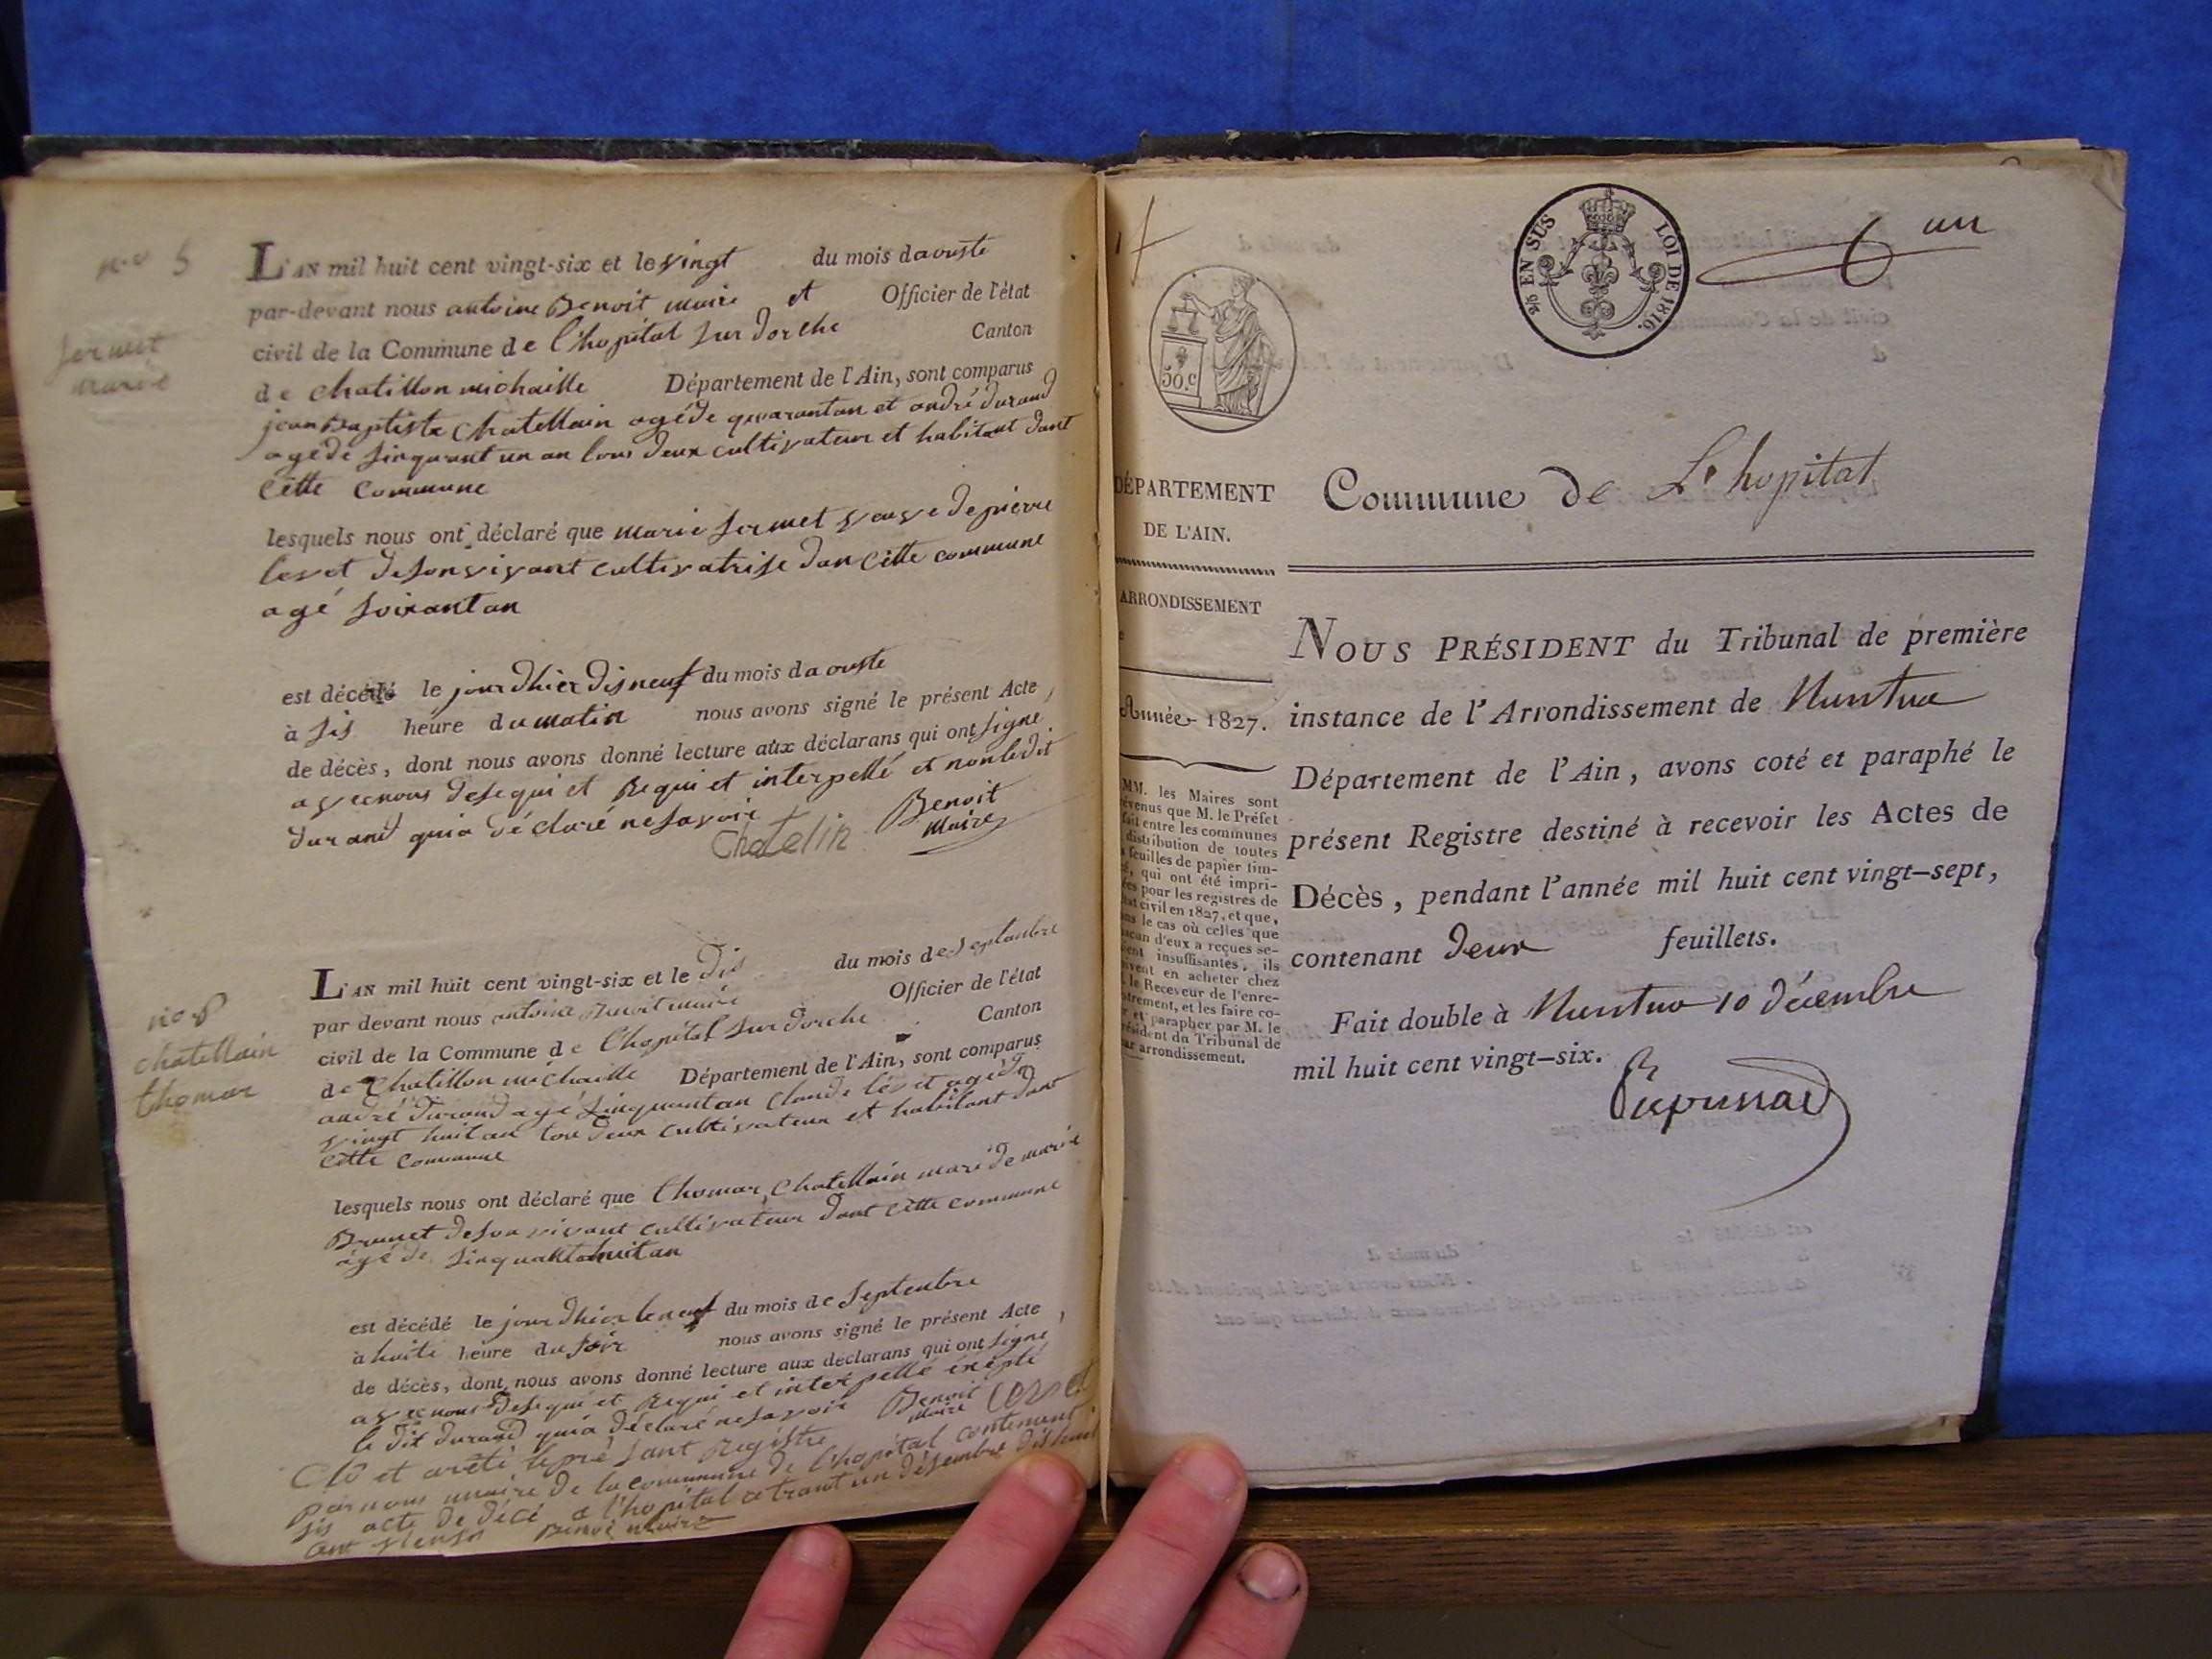 n.o 5
fermet
marie
L'AN mil huit cent vingt-six et le vingt du mois daouste
par-devant nous antoine Benoit maire et Officier de l'état
civil de la Commune de l'hopital sur dorche Canton
de chatillon michaille Département de l'Ain, sont comparus
jean Baptiste Chatellain agé de quarantan et andré durand
agé de sinquant un an tous deux cultivateur et habitant dant
cette commune
lesquels nous ont déclaré que marie fermet veuve de pierre
levet de son vivant cultivatrise dan cette commune
agé soixantan
est décédé le jour dhier disneuf du mois daouste
à sis heure du matin nous avons signé le présent Acte
de décès, dont nous avons donné lecture aux déclarans qui ont signe
avec nous de se qui et Requi et interpellé et non ledit
durand qui a déclaré ne savoir
Chatelin Benoit
maire
no 6
chatellain
thomas
L'AN mil huit cent vingt-six et le dis du mois de septanbre
par devant nous antoine Benoit maire Officier de l'état
civil de la Commune de l'hopital sur dorche Canton
de Chatillon michaille Département de l'Ain, sont comparus
andré durand agé sinquantan Claude levet agé de
vingt huit an tou deux cultivateur et habitant dant
cette commune
lesquels nous ont déclaré que thomas Chatellain mari de marie
Brunet de son vivant cultivateur dant cette commune
agé de sinquantahuitan
est décédé le jour dhier le neuf du mois de septenbre
à huite heure du soir nous avons signé le présent Acte
de décès, dont nous avons donné lecture aux déclarans qui ont signe
avec nous de se qui et Requi et interpellé exepté
le dit durand qui a déclaré ne savoir Benoit
maire
Clô et arêté le pré sant Registre
par nous maire de la commune de l'hopital contenant
sis acte de décé a l'hopital ce trant un désembre
Benoi maire
1
2/5 EN SUS LOI DE 1816.
50.c
un
DÉPARTEMENT
DE L'AIN.
ARRONDISSEMENT
e
Année 1827.
MM. les Maires sont
évenus que M. le Préfet
fait entre les communes
distribution de toutes
s feuilles de papier tim-
é, qui ont été impri-
ées pour les registres de
état civil en 1827, et que,
ans le cas où celles que
acun d'eux a reçues se-
ient insuffisantes, ils
oivent en acheter chez
. le Receveur de l'enre-
strement, et les faire co-
r et parapher par M. le
résident du Tribunal de
ur arrondissement.
Commune de L'hopital
NOUS PRÉSIDENT du Tribunal de première
instance de l'Arrondissement de Nantua
Département de l'Ain, avons coté et paraphé le
présent Registre destiné à recevoir les Actes de
Décès, pendant l'année mil huit cent vingt-sept,
contenant deux feuillets.
Fait double à Nantua 10 décembre
mil huit cent vingt-six.